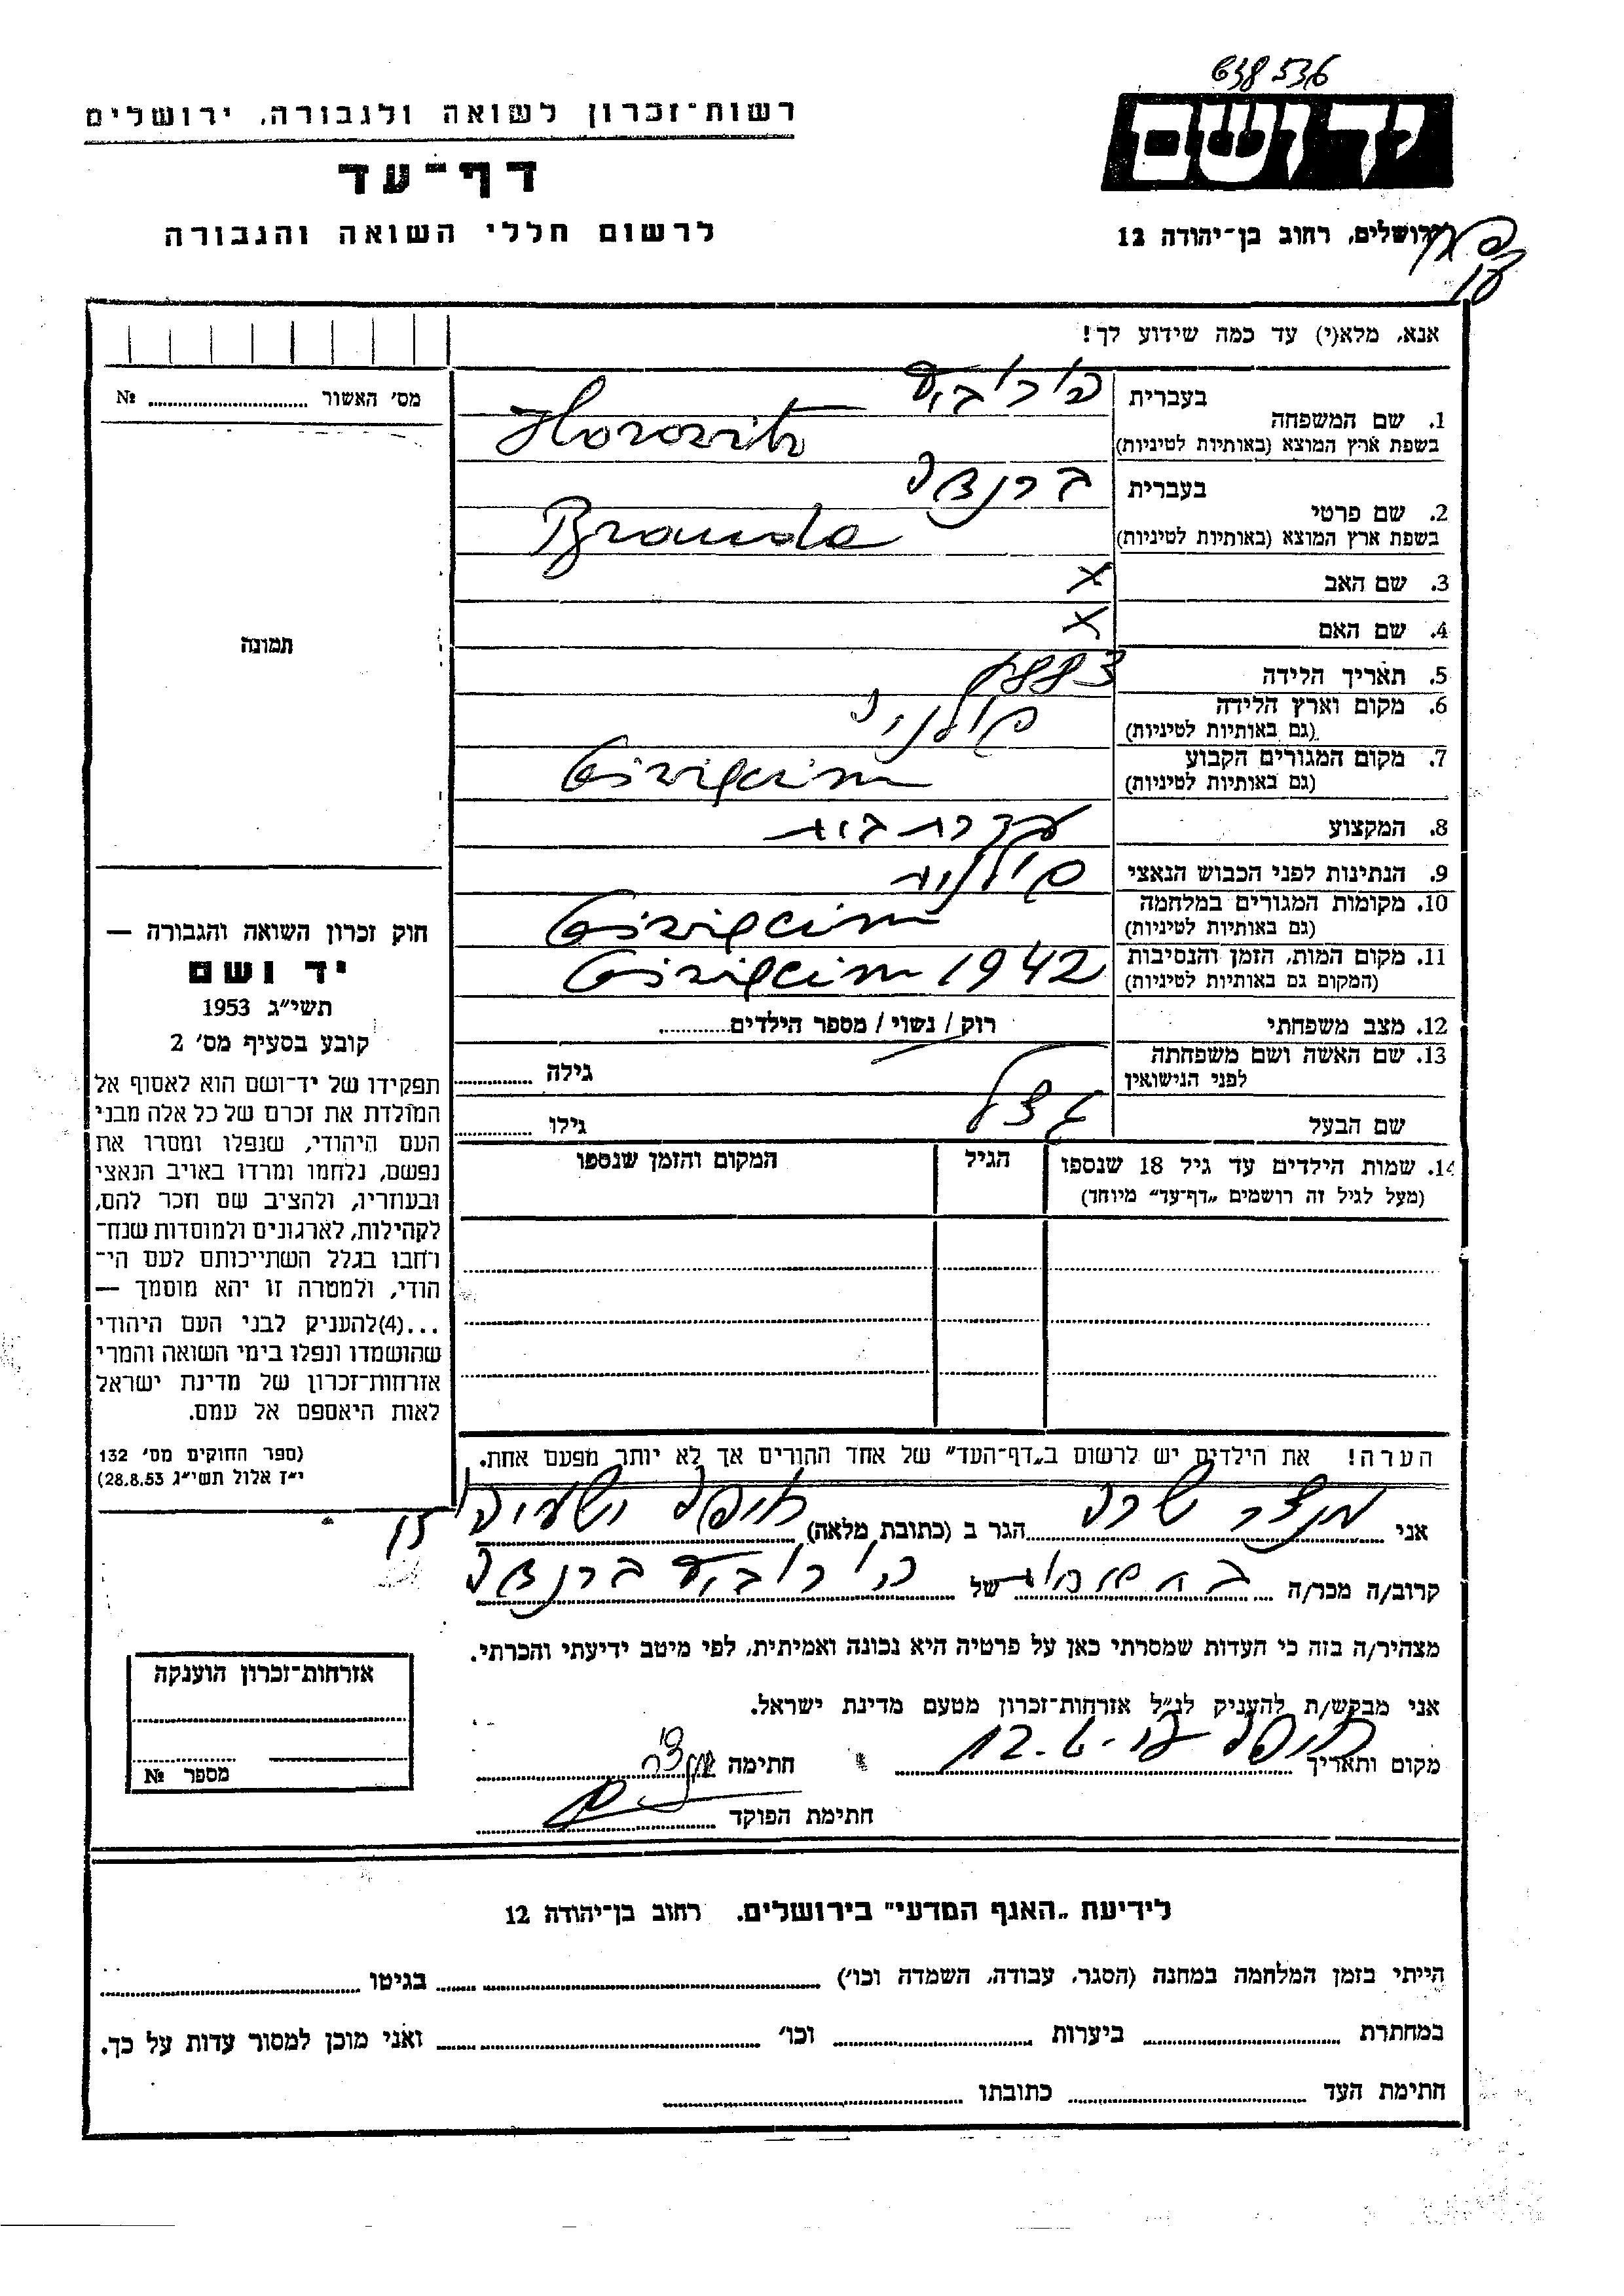 638536
יד ושם
רשות־זכרון לשואה ולגבורה, ירושלים
דף־עד
לרשום חללי השואה והגבורה
ירושלים, רחוב בן־יהודה 12
אנא, מלא(י) עד כמה שידוע לך!
מס׳ האשור № ........
1. שם המשפחה
בעברית הורוביץ
בשפת ארץ המוצא (באותיות לטיניות) Horovitz
2. שם פרטי
בעברית ברנדה
בשפת ארץ המוצא (באותיות לטיניות) Branda
3. שם האב X
4. שם האם X
5. תאריך הלידה 1883
6. מקום וארץ הלידה פולניה
(גם באותיות לטיניות)
7. מקום המגורים הקבוע
(גם באותיות לטיניות)
8. המקצוע עקרת בית
9. הנתינות לפני הכבוש הנאצי פולנית
10. מקומות המגורים במלחמה
(גם באותיות לטיניות)
11. מקום המות, הזמן והנסיבות 1942
(המקום גם באותיות לטיניות)
12. מצב משפחתי רוק / נשוי / מספר הילדים........
13. שם האשה ושם משפחתה
לפני הנישואין
גילה ........
שם הבעל
גילו ........
14. שמות הילדים עד גיל 18 שנספו
(מעל לגיל זה רושמים „דף־עד״ מיוחד)
הגיל
המקום והזמן שנספו
תמונה
חוק זכרון השואה והגבורה —
יד ושם
תשי״ג 1953
קובע בסעיף מס׳ 2
תפקידו של יד־ושם הוא לאסוף אל
המולדת את זכרם של כל אלה מבני
העם היהודי, שנפלו ומסרו את
נפשם, נלחמו ומרדו באויב הנאצי
ובעוזריו, ולהציב שם וזכר להם,
לקהילות, לארגונים ולמוסדות שנח־
רחבו בגלל השתייכותם לעם הי־
הודי, ולמטרה זו יהא מוסמך —
...(4)להעניק לבני העם היהודי
שהושמדו ונפלו בימי השואה והמרי
אזרחות־זכרון של מדינת ישראל
לאות היאספם אל עמם.
(ספר החוקים מס׳ 132
י״ז אלול תשי״ג 28.8.53)
הערה! את הילדים יש לרשום ב„דף־העד״ של אחד ההורים אך לא יותר מפעם אחת.
אני מנצר שרה הגר ב (כתובת מלאה) חיפה
קרוב/ה מכר/ה של הורוביץ ברנדה
מצהיר/ה בזה כי העדות שמסרתי כאן על פרטיה היא נכונה ואמיתית, לפי מיטב ידיעתי והכרתי.
אני מבקש/ת להעניק לנ״ל אזרחות־זכרון מטעם מדינת ישראל.
מקום ותאריך חיפה חתימה
חתימת הפוקד
אזרחות־זכרון הוענקה
מספר №
לידיעת „האגף המדעי״ בירושלים, רחוב בן־יהודה 12
הייתי בזמן המלחמה במחנה (הסגר, עבודה, השמדה וכו׳) ........ בגיטו ........
במחתרת ........ ביערות ........ וכו׳ ........ ואני מוכן למסור עדות על כך.
חתימת העד ........ כתובתו ........